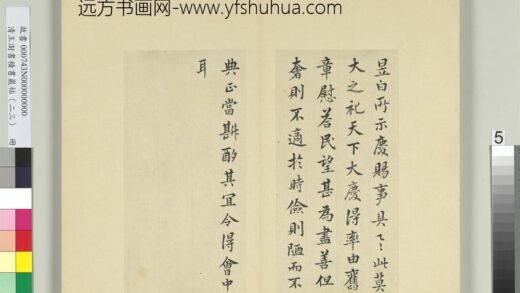 远方书画网-www.yfshuhua.com
昱白所示慶賜事具之此莫
大之礼天下大慶得率由舊
章慰荅民望甚為盡善但
奢則不適於時儉則陋而不
典正當斟酌其宜令得會中
耳
故書 000743N000000000
清王澍書積書巖帖(二三) 冊
5